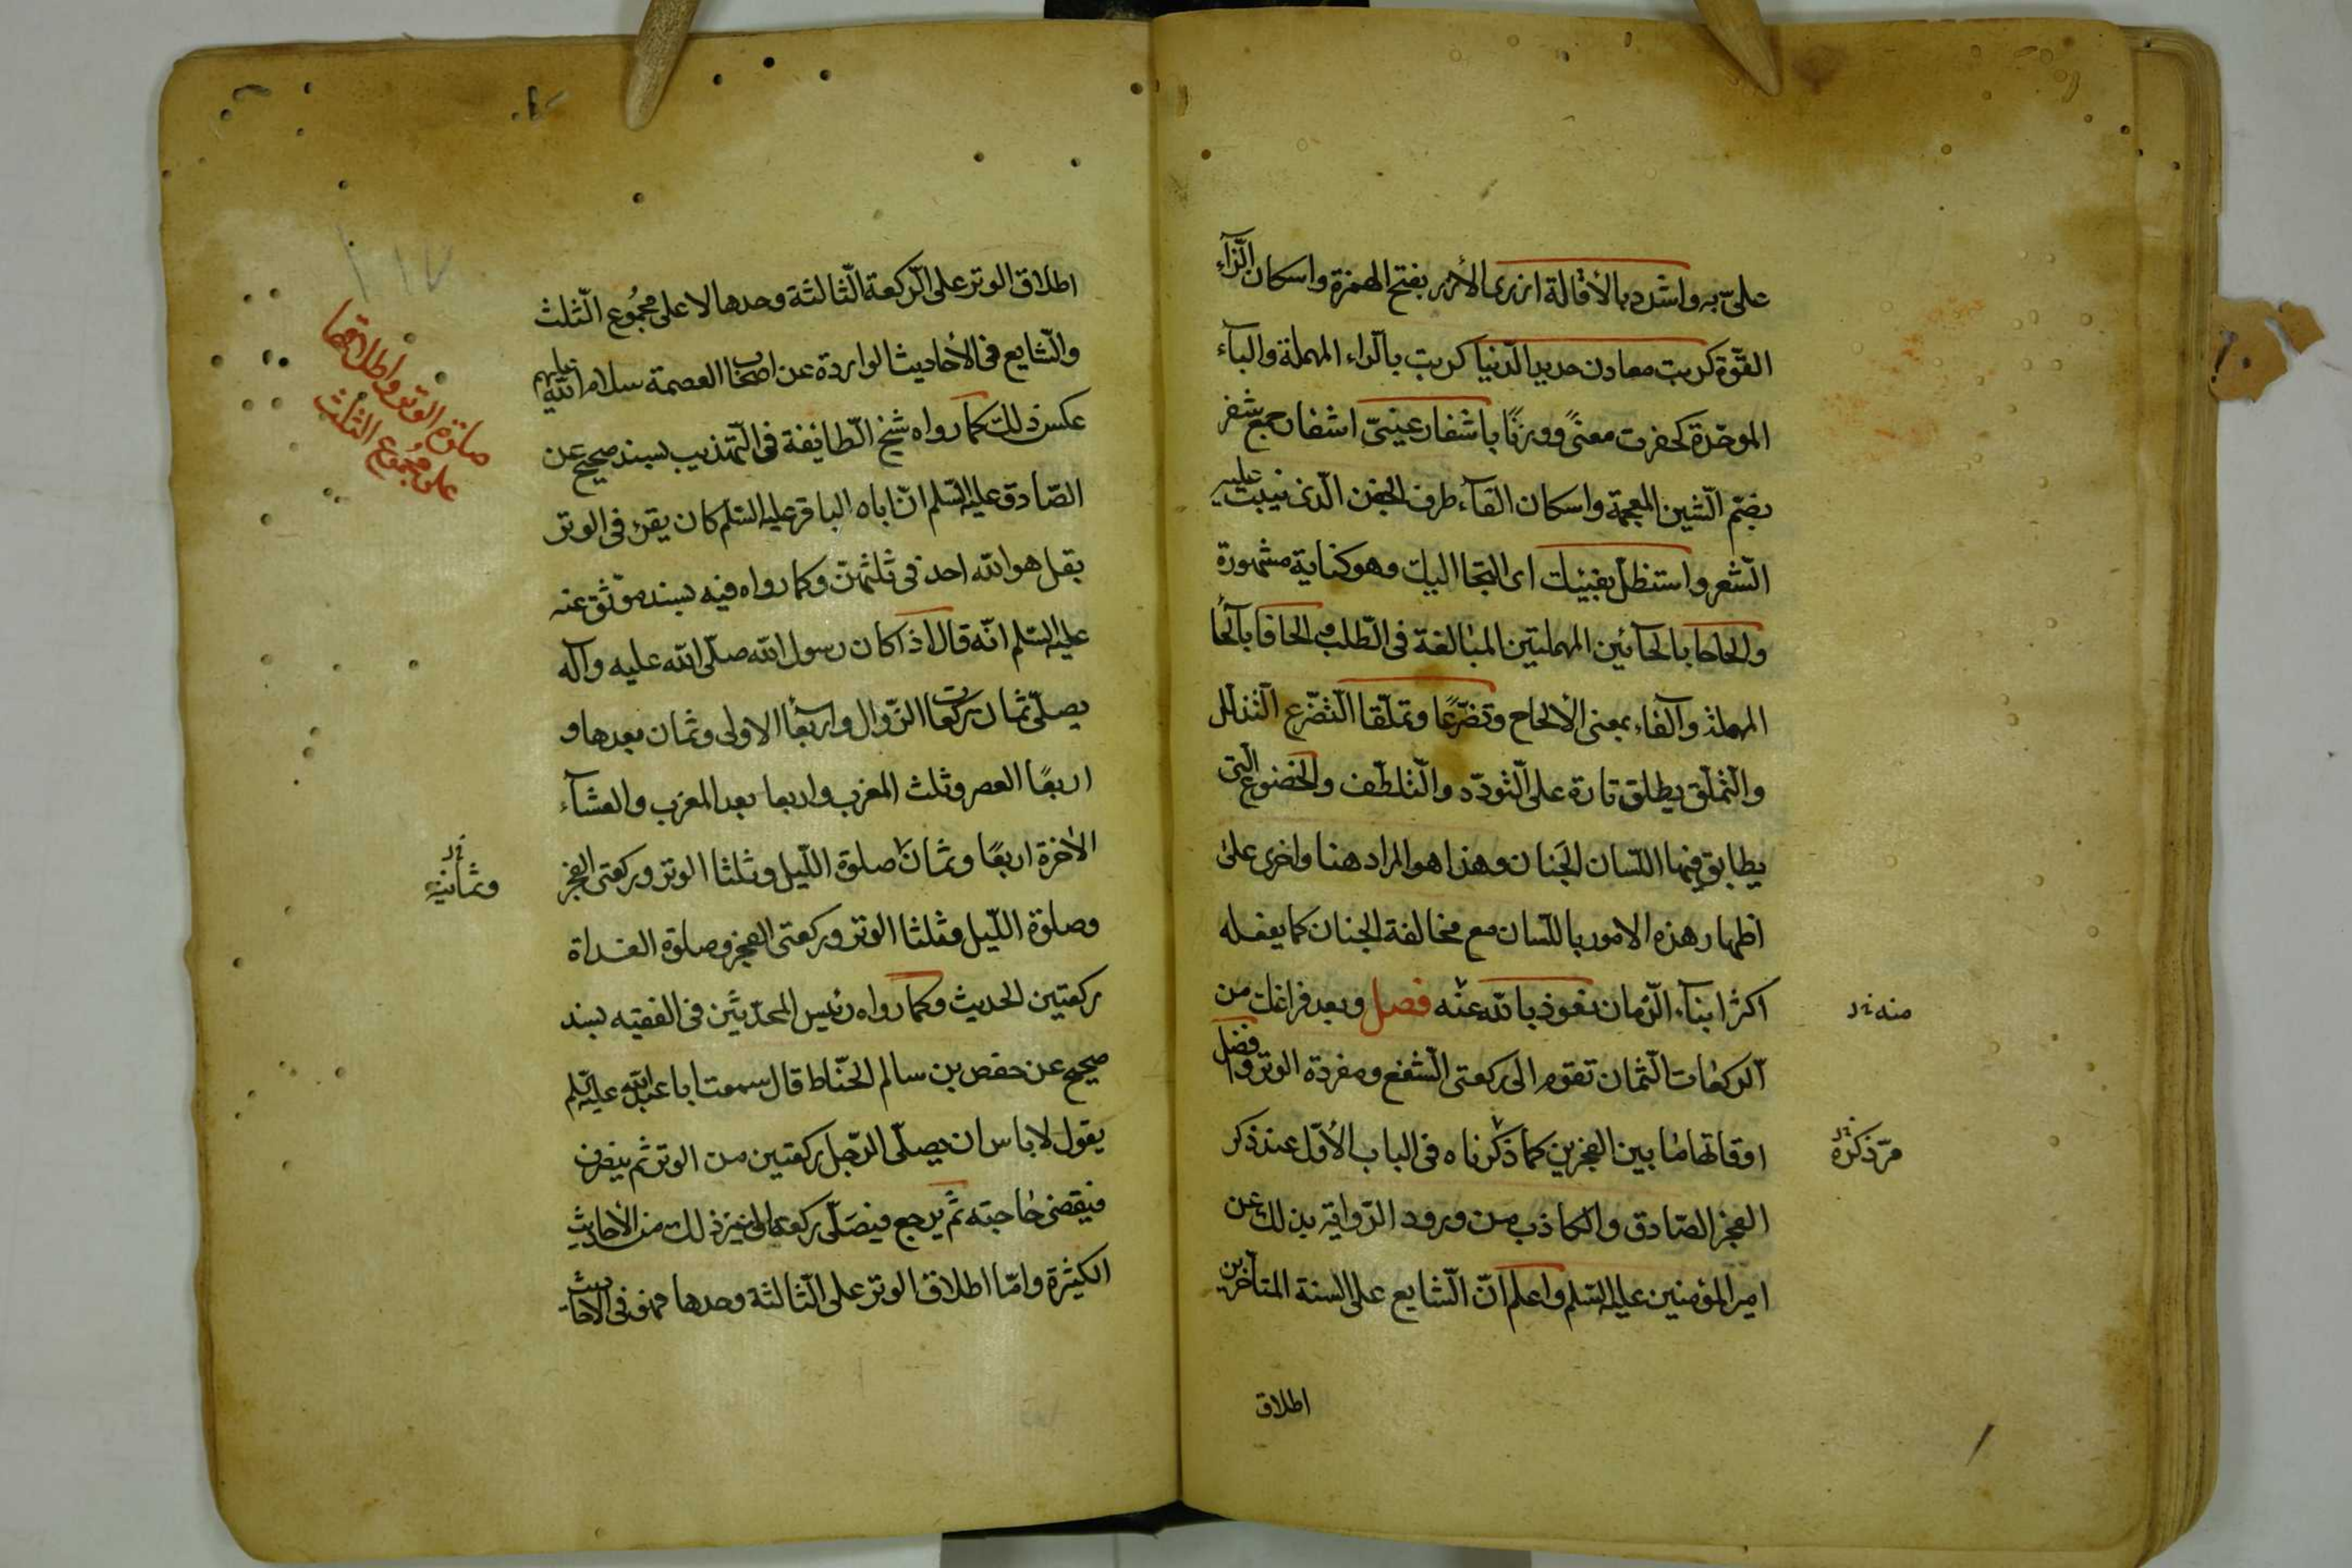 علىّ به واشدد بالأقالة ازرى الأزر بفتح الهمزة واسكان الزّاء
القوّة كربت معادن حديد الدّنيا كربت بالرّاء المهملة والباء
الموحّدة كحفرت معنىً ووزنًا باشفار عينىّ اشفار جمع شفر
بضمّ الشّين المعجمة واسكان الفآء طرف الجفن الّذى ينبت عليه
الشّعر واستظلّ بفيئك اى التجا اليك وهو كناية مشهورة
والحاحا بالحآئين المهملتين المبالغة فى الطّلب والحافا بالحآ
المهملة والفاء بمعنى الألحاح وتضرّعًا وتملّقا التّضرّع التّذلّل
والتّملّق يطلق تارة على التّودّد والتّلطّف والخضوع الّتى
يطابق فيها اللّسان الجَنان وهذا هو المراد هنا واخرى على
اظهار هذه الامور باللّسان مع مخالفة الجنان كما يفعله
اكثر ابنآء الزّمان نعوذ بالله عنه فصل وبعد فراغك من
منه ند
الركعات الثّمان تقوم الى ركعتى الشّفع ومفردة الوتر وافضل
اوقاتها ما بين الفجرين كما ذكرناه فى الباب الأوّل عند ذكر
مرّ ذكره ند
الفجر الصّادق والكاذب من ورود الرّواية بذلك عن
امير المؤمنين عليه السّلم واعلم انّ الشّايع على السنة المتأخّرين
اطلاق
اطلاق الوتر على الرّكعة الثّالثة وحدها لا على مجمُوع الثّلث
صلوة الوتر واطلاقها
على مجمُوع الثلث
والشّايع فى الأحاديث الواردة عن اصحاب العصمة سلام الله عليهم
عكس ذلك كما رواه شيخ الطّايفة فى التّهذيب بسند صحيح عن
الصّادق عليه السّلم انّ اباه الباقر عليه السّلم كان يقرء فى الوتر
بقل هو الله احد فى ثلثهنّ وكما رواه فيه بسند موثّق عنه
عليه السّلم انّه قال اذا كان رسول الله صلّى الله عليه وآله
يصلّى ثمان ركعات الزّوال واربعًا الاولى وثمان بعدها و
اربعًا العصر وثلث المغرب واربعا بعد المغرب والعشآء
الأخرة اربعًا وثمانَ صلوة اللّيل وثلثا الوتر وركعتى الفجر
وثمانية ند
وصلوة اللّيل وثلثا الوتر وركعتى الفجر وصلوة الغداة
ركعتين الحديث وكما رواه رئيس المحدّثين فى الفقيه بسند
صحيح عن حفص بن سالم الحنّاط قال سمعت ابا عبد الله عليه السّلم
يقول لا باس ان يصلّى الرّجل ركعتين من الوتر ثم ينصرف
فيقضى حاجته ثمّ يرجع فيصَلّى ركعة الى غير ذلك من الأحاديث
الكثيرة وامّا اطلاق الوتر على الثّالثة وحدها فهو فى الاحاديث